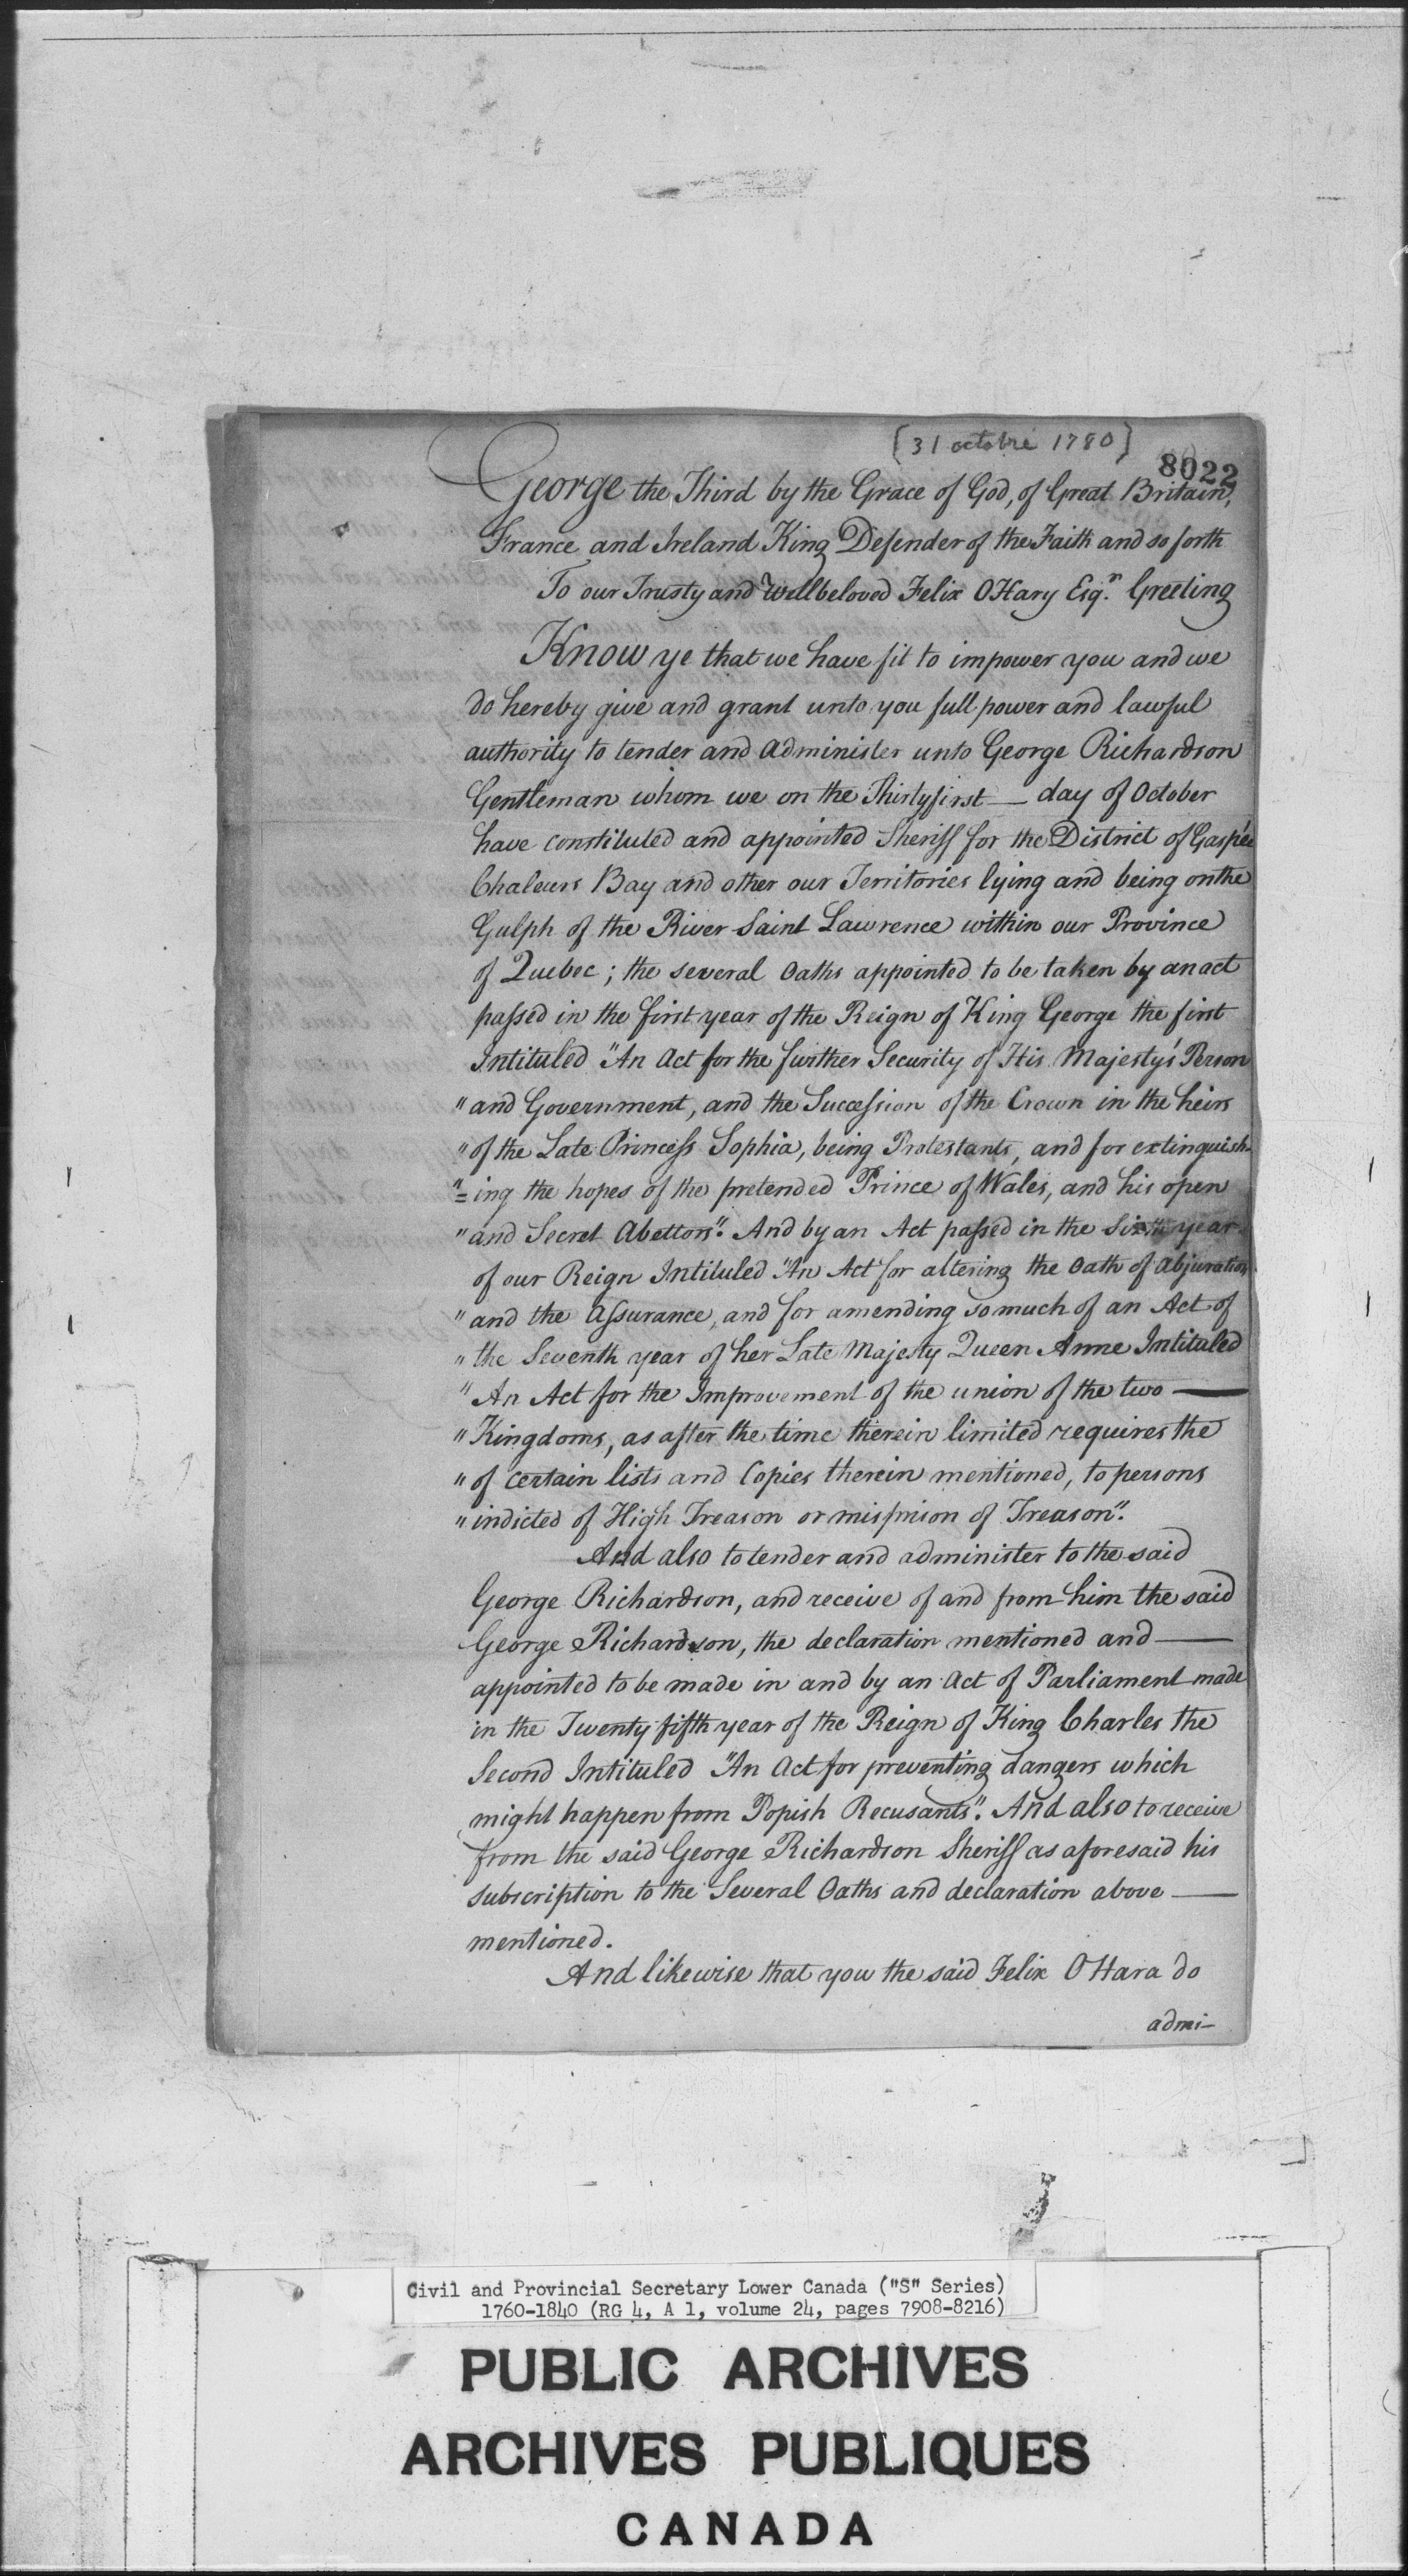 [31 octobre 1780]
8022
George the Third by the Grace of God, of Great Britain,
France and Ireland King Defender of the Faith and so forth
To our Trusty and Wellbeloved Felix OHary Esqr. Greeting
Know ye that we have fit to impower you and we
do hereby give and grant unto you full power and lawful
authority to tender and administer unto George Richardson
Gentleman whom we on the Thirtyfirst — day of October
have constituted and appointed Sheriff for the District of Gaspée
Chaleurs Bay and other our Territories lying and being on the
Gulph of the River Saint Lawrence within our Province
of Quebec; the several Oaths appointed to be taken by an act
passed in the first year of the Reign of King George the first
Intituled "An Act for the further Security of His Majesty's Person
" and Government, and the Succession of the Crown in the heirs
" of the Late Princess Sophia, being Protestants, and for extinguish-
"= ing the hopes of the pretended Prince of Wales, and his open
" and Secret Abettors". And by an Act passed in the Sixth year
of our Reign Intituled "An Act for altering the Oath of Abjuration
" and the Assurance, and for amending so much of an Act of
" the Seventh year of her Late Majesty Queen Anne Intituled
" An Act for the Improvement of the union of the two —
" Kingdoms, as after the time therein limited requires the
" of certain lists and Copies therein mentioned, to persons
" indicted of High Treason or misprison of Treason".
And also to tender and administer to the said
George Richardson, and receive of and from him the said
George Richardson, the declaration mentioned and —
appointed to be made in and by an Act of Parliament made
in the Twenty fifth year of the Reign of King Charles the
Second Intituled "An Act for preventing dangers which
might happen from Popish Recusants". And also to receive
from the said George Richardson Sheriff as aforesaid his
subscription to the Several Oaths and declaration above —
mentioned.
And likewise that you the said Felix OHara do
admi-
Civil and Provincial Secretary Lower Canada ("S" Series)
1760-1840 (RG 4, A 1, volume 24, pages 7908-8216)
PUBLIC ARCHIVES
ARCHIVES PUBLIQUES
CANADA